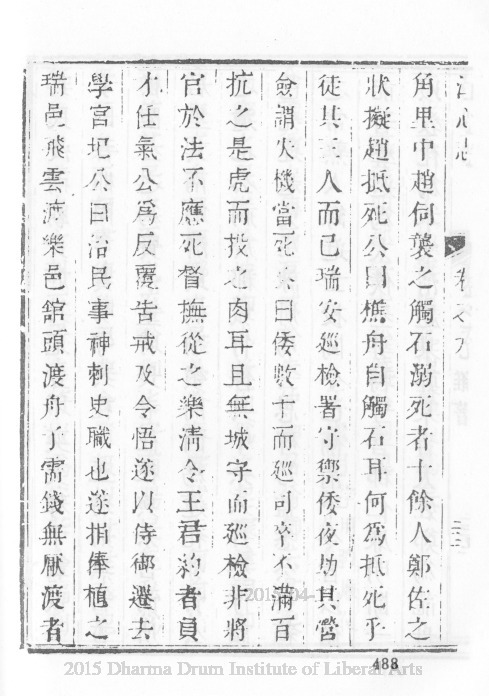 江心志 卷之九 二二
角里中趙伺襲之觸石溺死者十餘人鄭佐之
狀擬趙抵死公曰樵舟自觸石耳何爲抵死乎
徒其三人而已瑞安廵檢署守禦倭夜劫其營
僉謂失機當死公曰倭數十而廵司卒不滿百
抗之是虎而投之肉耳且無城守而廵檢非將
官於法不應死督撫從之樂清令王君約者員
才任氣公爲反覆告戒及令悟遂以侍御遷去
學宮圮公曰治民事神刺史職也遂捐俸植之
瑞邑飛雲渡樂邑舘頭渡舟子需錢無厭渡者
488
2015-04-
2015 Dharma Drum Institute of Liberal Arts